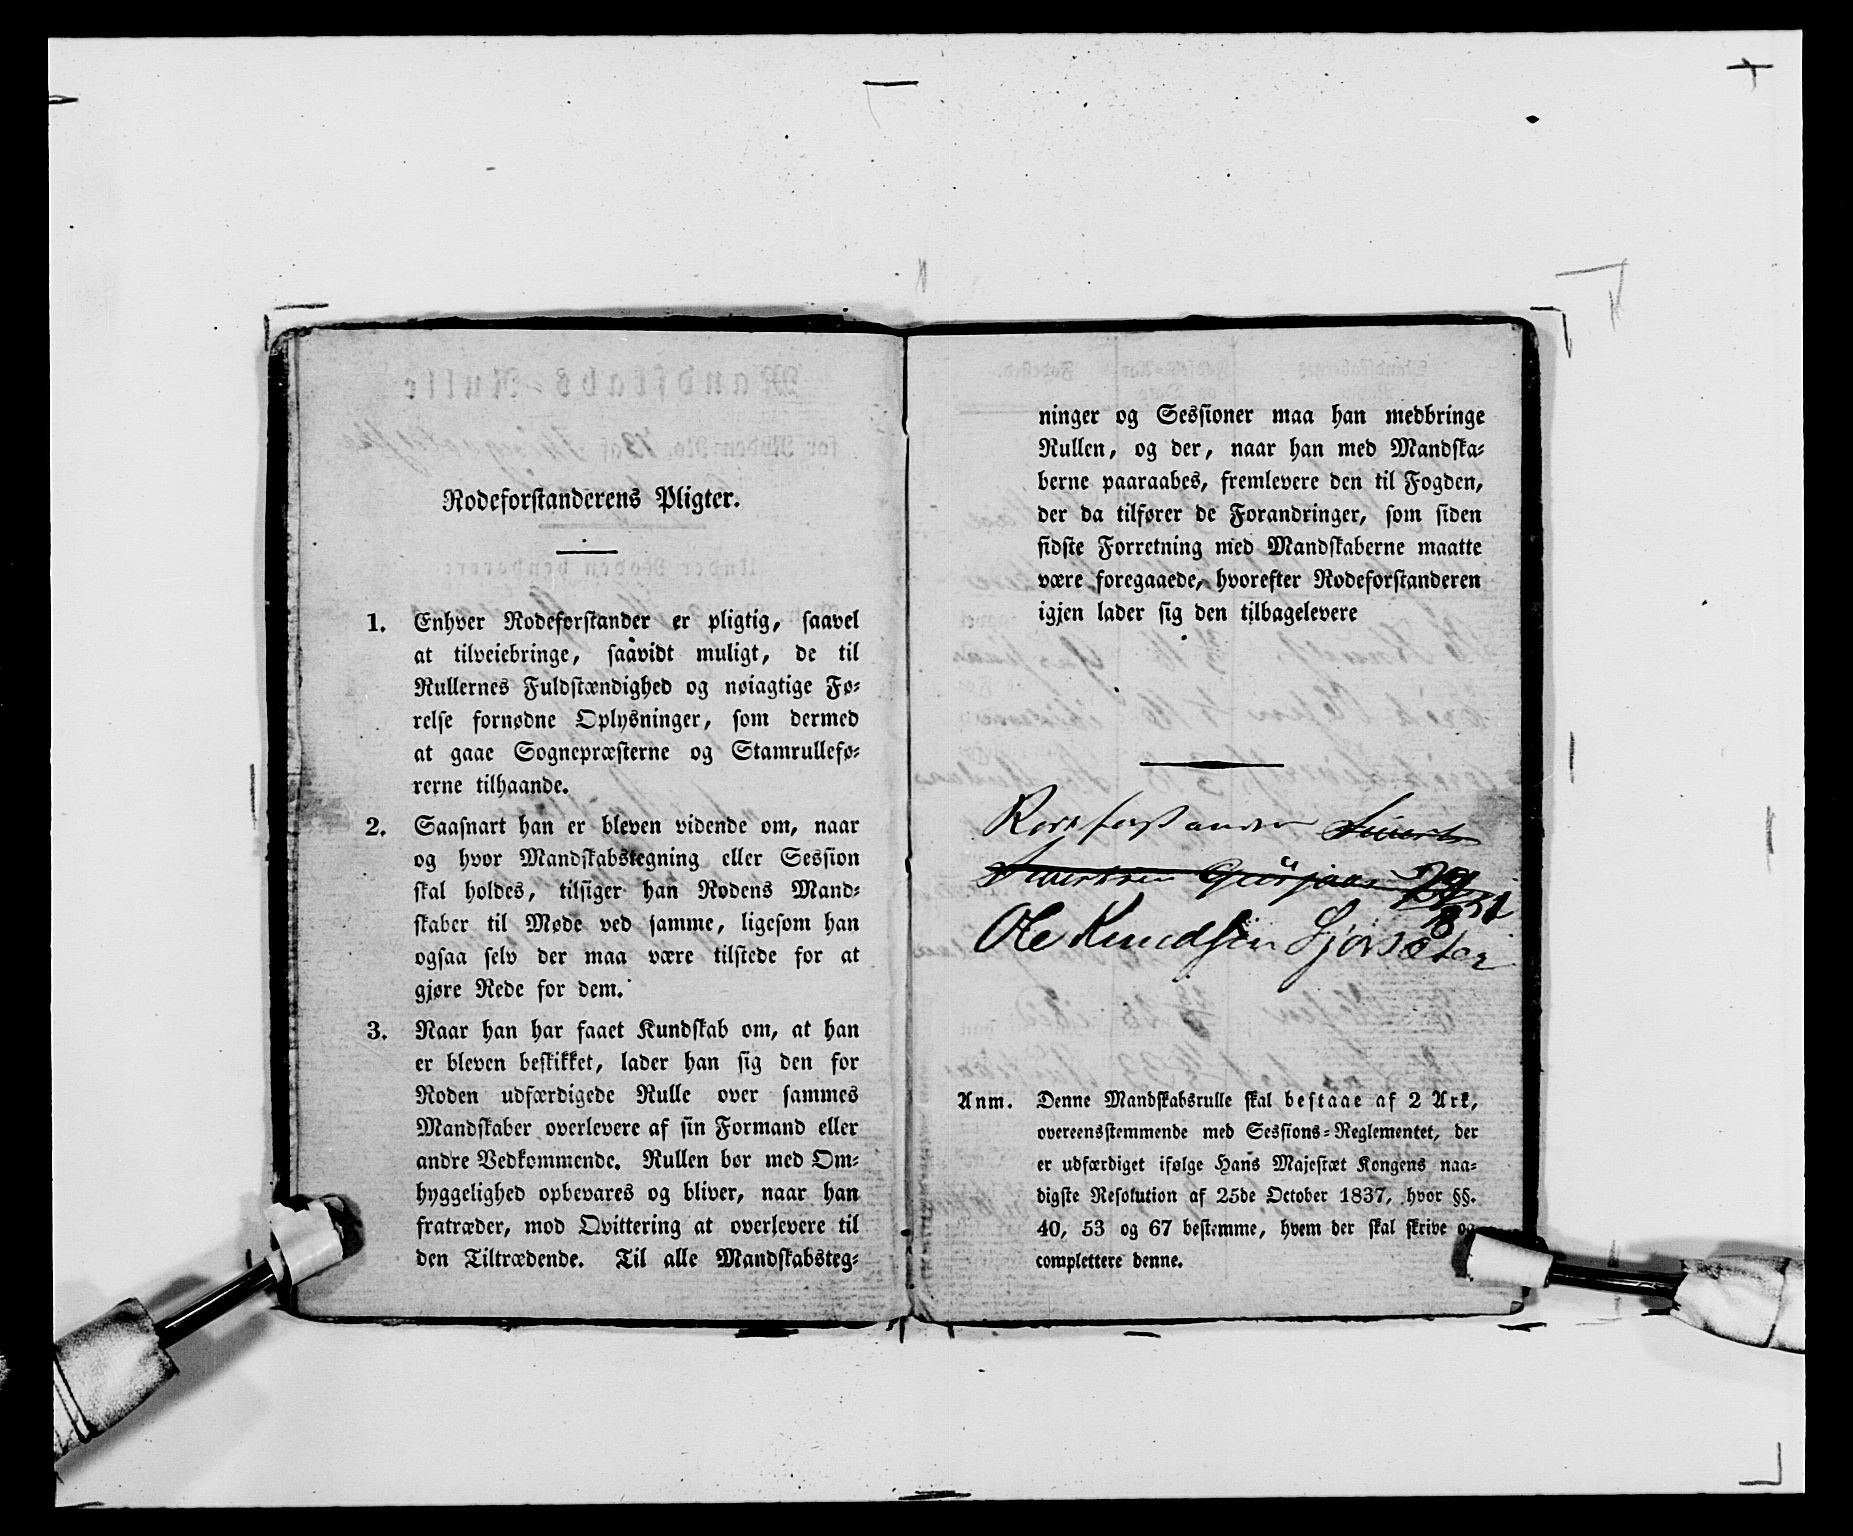 Rodeforstanderens Pligter.
1. Enhver Rodeforstander er pligtig, saavel
at tilveiebringe, saavidt muligt, de til
Rullernes Fuldstændighed og nøiagtige Fø-
relse fornødne Oplysninger, som dermed
at gaae Sognepræsterne og Stamrullefø-
rerne tilhaande.
2. Saasnart han er bleven vidende om, naar
og hvor Mandskabstegning eller Session
skal holdes, tilsiger han Rodens Mand-
skaber til Møde ved samme, ligesom han
ogsaa selv der maa være tilstede for at
gjøre Rede for dem.
3. Naar han har faaet Kundskab om, at han
er bleven beskikket, lader han sig den for
Roden udfærdigede Rulle over sammes
Mandskaber overlevere af sin Formand eller
andre Vedkommende. Rullen bør med Om-
hyggelighed opbevares og bliver, naar han
fratræder, mod Qvittering at overlevere til
den Tiltrædende. Til alle Mandskabsteg-
ninger og Sessioner maa han medbringe
Rullen, og der, naar han med Mandska-
berne paaraabes, fremlevere den til Fogden,
der da tilfører de Forandringer, som siden
sidste Forretning med Mandskaberne maatte
være foregaaede, hvorefter Rodeforstanderen
igjen lader sig den tilbagelevere
Rodeforstander Sivert
Sivertsen
Ole Knudsen
Anm. Denne Mandskabsrulle skal bestaae af 2 Ark,
overeensstemmende med Sessions-Reglementet, der
er udfærdiget ifølge Hans Majestæt Kongens naa-
digste Resolution af 25de October 1837, hvor §§.
40, 53 og 67 bestemme, hvem der skal skrive og
complettere denne.